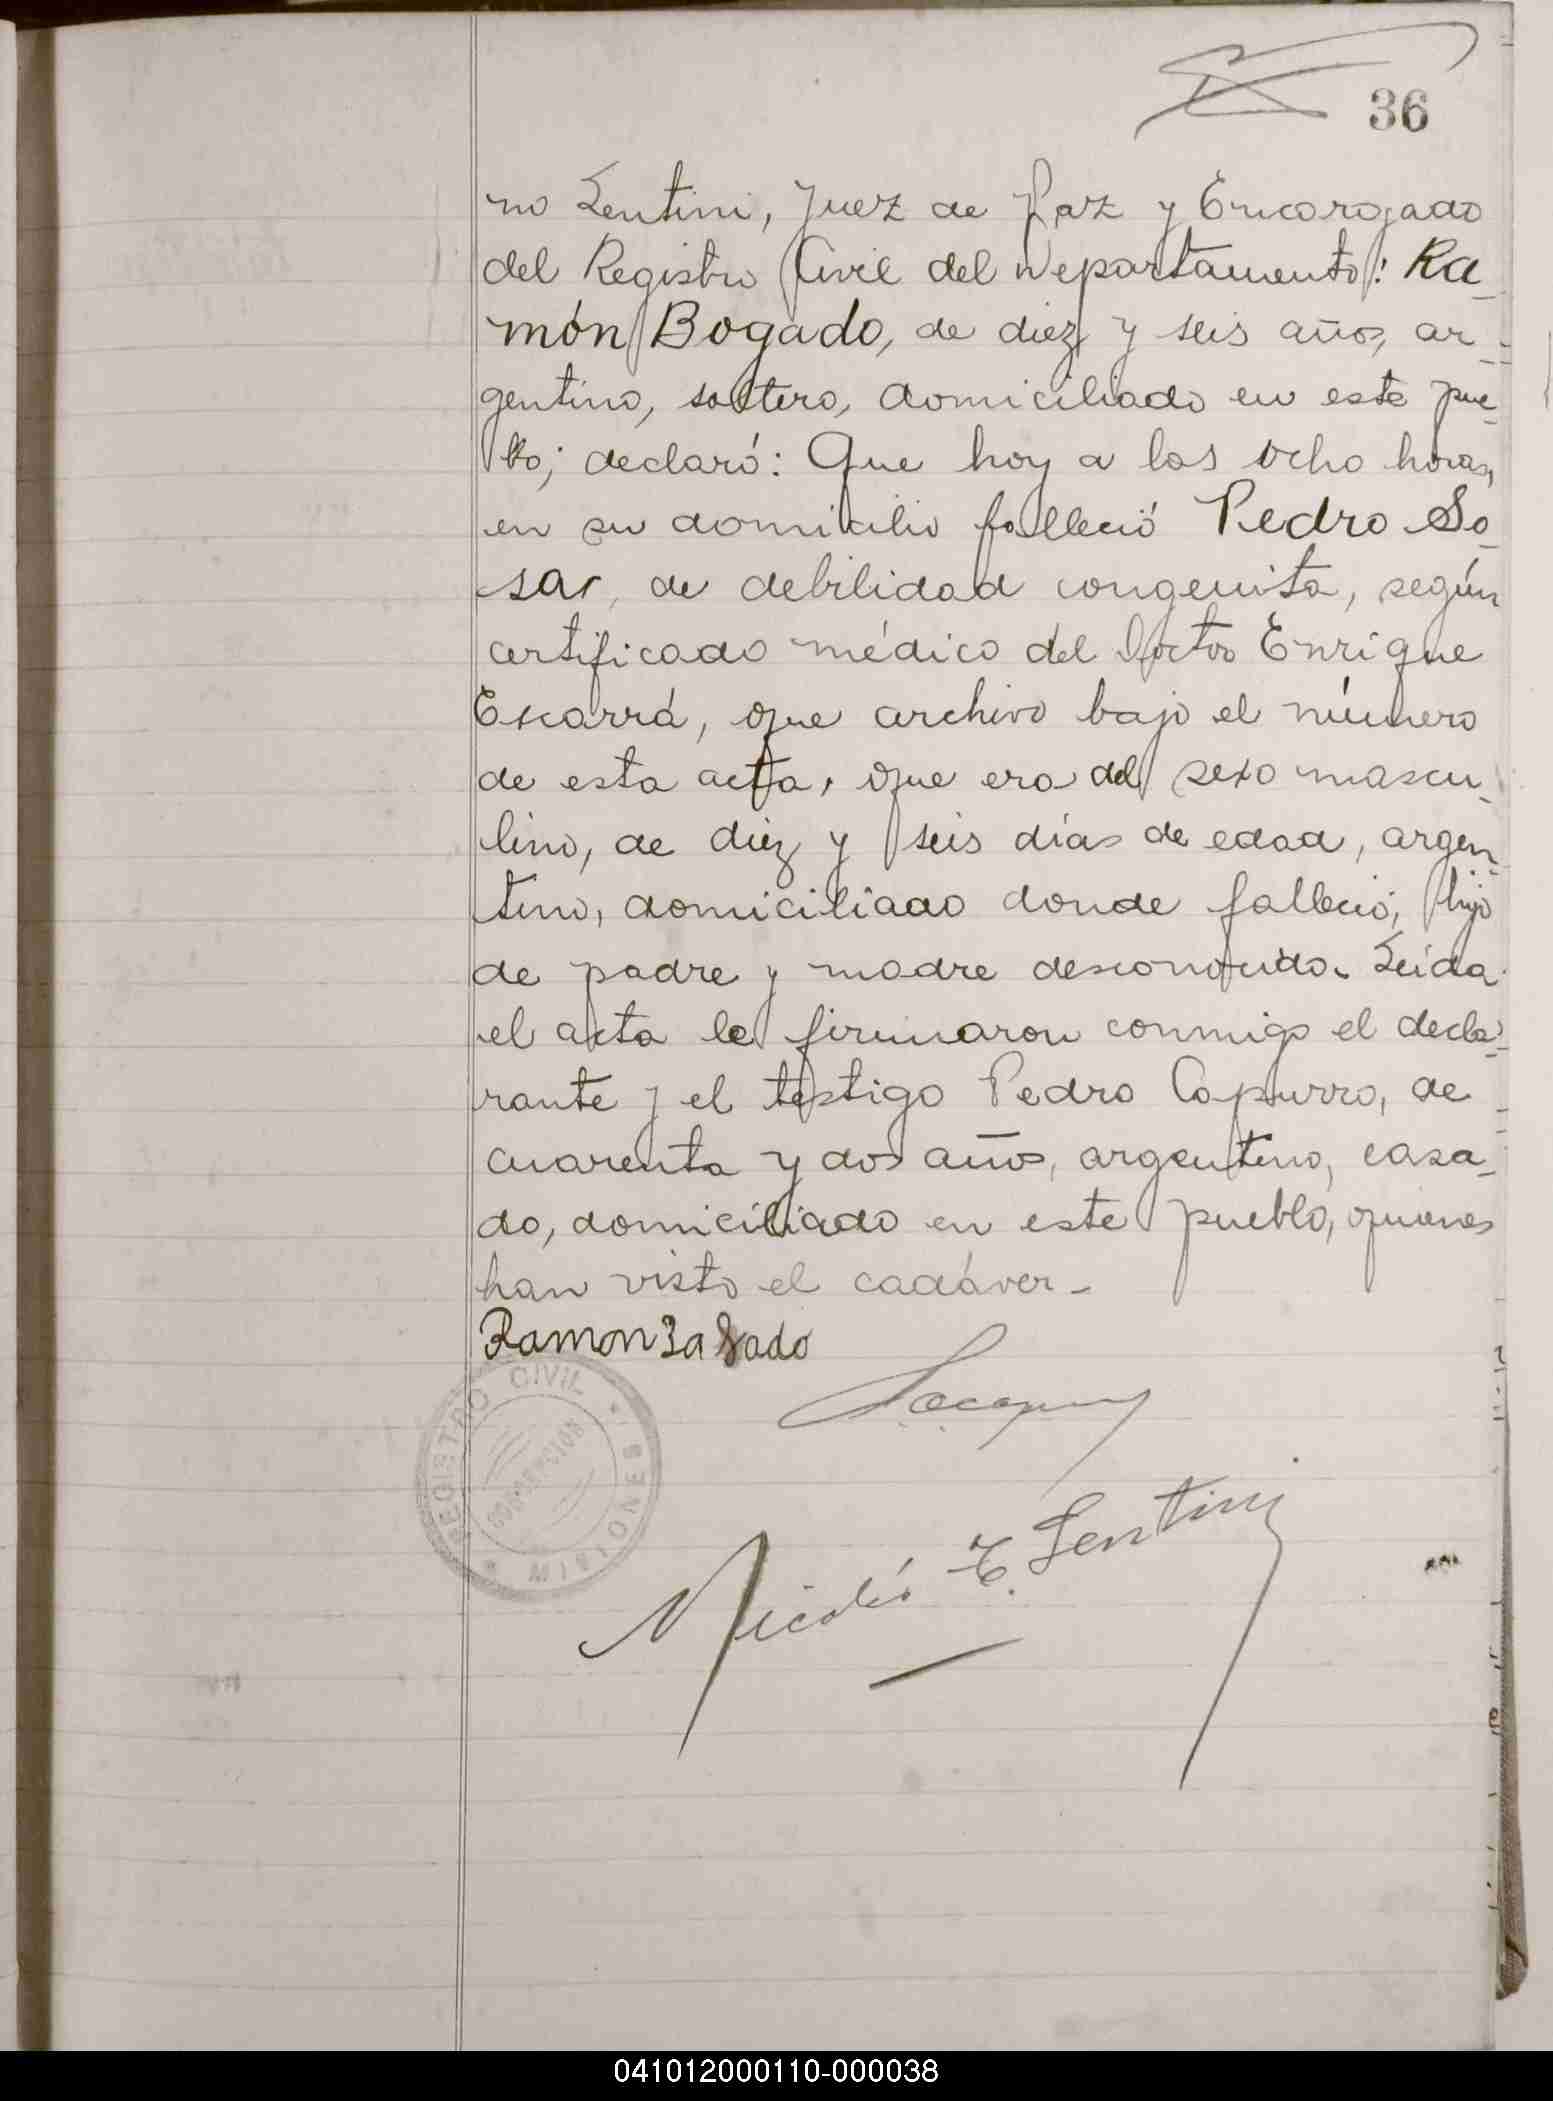 36
no Lentini, Juez de Paz y Encargado
del Registro Civil del Departamento: Ra-
món Bogado, de diez y seis años, ar-
gentino, soltero, domiciliado en este pue-
blo; declaró: Que hoy a las ocho horas,
en su domicilio falleció Pedro So-
sa, de debilidad congenita, según
certificado médico del Doctor Enrique
Escarrá, que archivo bajo el número
de esta acta, que era del sexo mascu-
lino, de diez y seis días de edad, argen-
tino, domiciliado donde falleció; hijo
de padre y madre desconocido. Leida
el acta la firmaron conmigo el decla-
rante y el testigo Pedro Capurro, de
cuarenta y dos años, argentino, casa-
do, domiciliado en este pueblo, quienes
han visto el cadáver-
Ramon Bogado
REGISTRO CIVIL
MISIONES
Nicolás E. Lentini
041012000110-000038